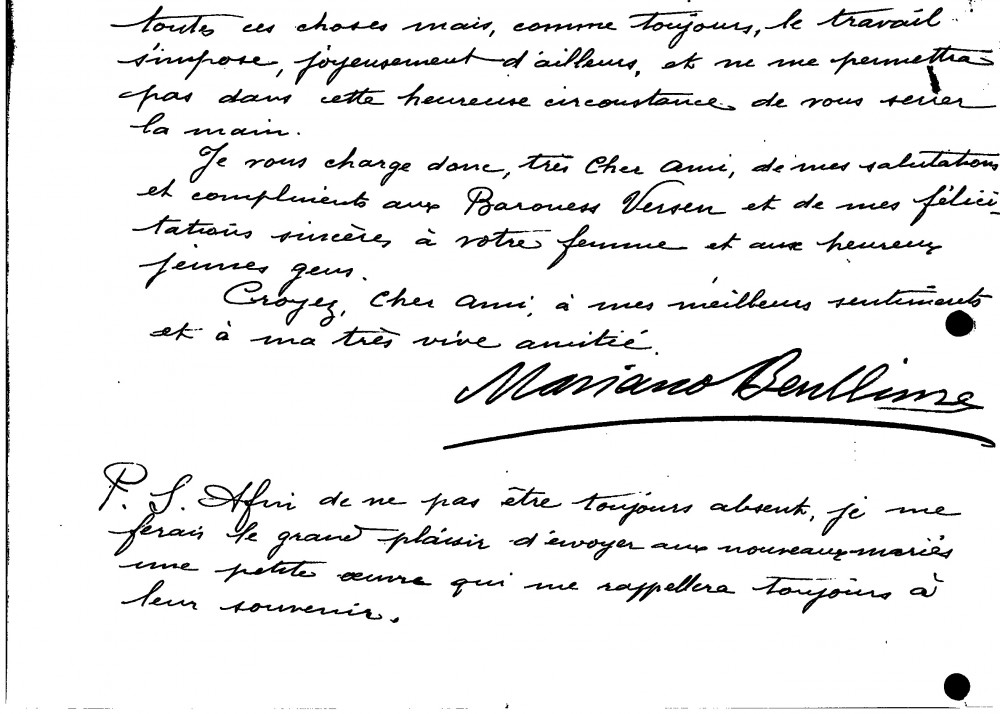 toutes ces choses mais, comme toujours, le travail
s'impose, joyeusement d'ailleurs, et ne me permettra
pas dans cette heureuse circonstance de vous serrer
la main.
Je vous charge donc, très Cher Ami, de mes salutations
et compliments aux Baroness Versen et de mes félici-
tations sincères à votre femme et aux heureux
jeunes gens.
Croyez, Cher Ami, à mes meilleurs sentiments
et à ma très vive amitié.
Mariano Benlliure
P. S. Afin de ne pas être toujours absent, je me
ferais le grand plaisir d'envoyer aux nouveaux mariés
une petite œuvre qui me rappellera toujours à
leur souvenir.